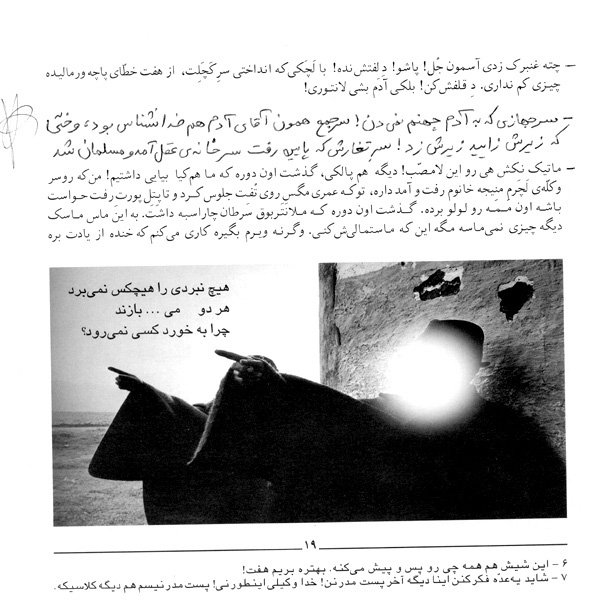 – چته غنبرک زدی آسمون جُل! پاشو! دِ لفتش نده! با لَچَکی که انداختی سرِ کَچَلِت، از هفت خطّای پاچه ورمالیده
چیزی کم نداری. دِ قلفش کن! بلکی آدَم بشی لانتوری!
– سر جهازی که به آدم جهنم نمی دن! سر جمع همون آقای آدم هم خدا نشناس بوده، وختی
که زیرش زایید زیرش زد! سر تغارش که پایین رفت سر خانه‌ی عقل آمد و مسلمان شد
– ماتیک نکش هی رو این لامصّب! دیگه هم پالکی، گذشت اون دوره که ما هم کیا بیایی داشتیم! من که رو سر
و کلّه‌ی لَچَرم منیجه خانوم رفت و آمد داره، تو که عمری مگس روی تُفت جلوس کرد و تا پتِل پورت رفت حواست
باشه اون مَمه رو لولو برده. گذشت اون دوره که ملانتَربوق سَرطان چاراسبه داشت. به این ماس ماسک
دیگه چیزی نمی‌ماسه مگه این که ماستمالی‌ش کنی. وگرنه ویرم بگیره کاری می‌کنم که خنده از یادت بره
هیچ نبردی را هیچکس نمی‌برد
هر دو می ... بازند
چرا به خورد کسی نمی‌رود؟
۱۹
۶ - این شیش هم همه چی رو پس و پیش می‌کنه. بهتره بریم هفت!
۷ - شاید یه عدّه فکر کنن اینا دیگه آخر پست مدرنن! خدا وکیلی اینطور نی! پست مدرنیسم هم دیگه کلاسیکه.